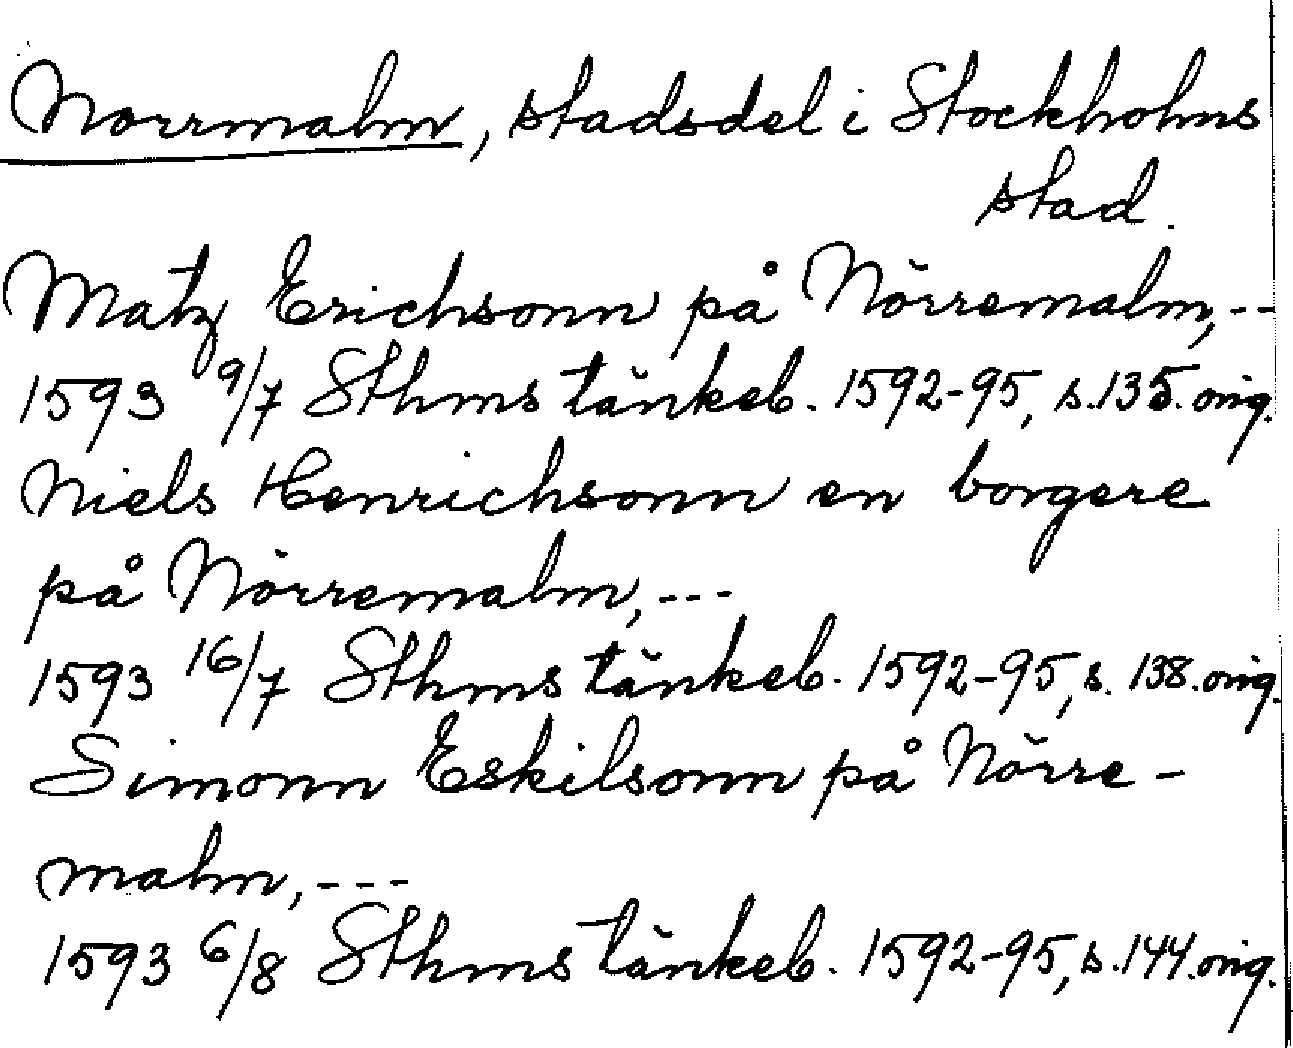 Norrmalm, stadsdel i Stockholms
stad.
Matz Erichsonn på Nörremalm, --
1593 9/7 Sthms tänkeb. 1592-95, s.135.orig.
Niels Henrichsonn en borgere
på Nörremalm, ---
1593 16/7 Sthms tänkeb. 1592-95, s. 138.orig.
Simonn Eskilsonn på Nörre-
malm, ---
1593 6/8 Sthms tänkeb. 1592-95, s.144.orig.